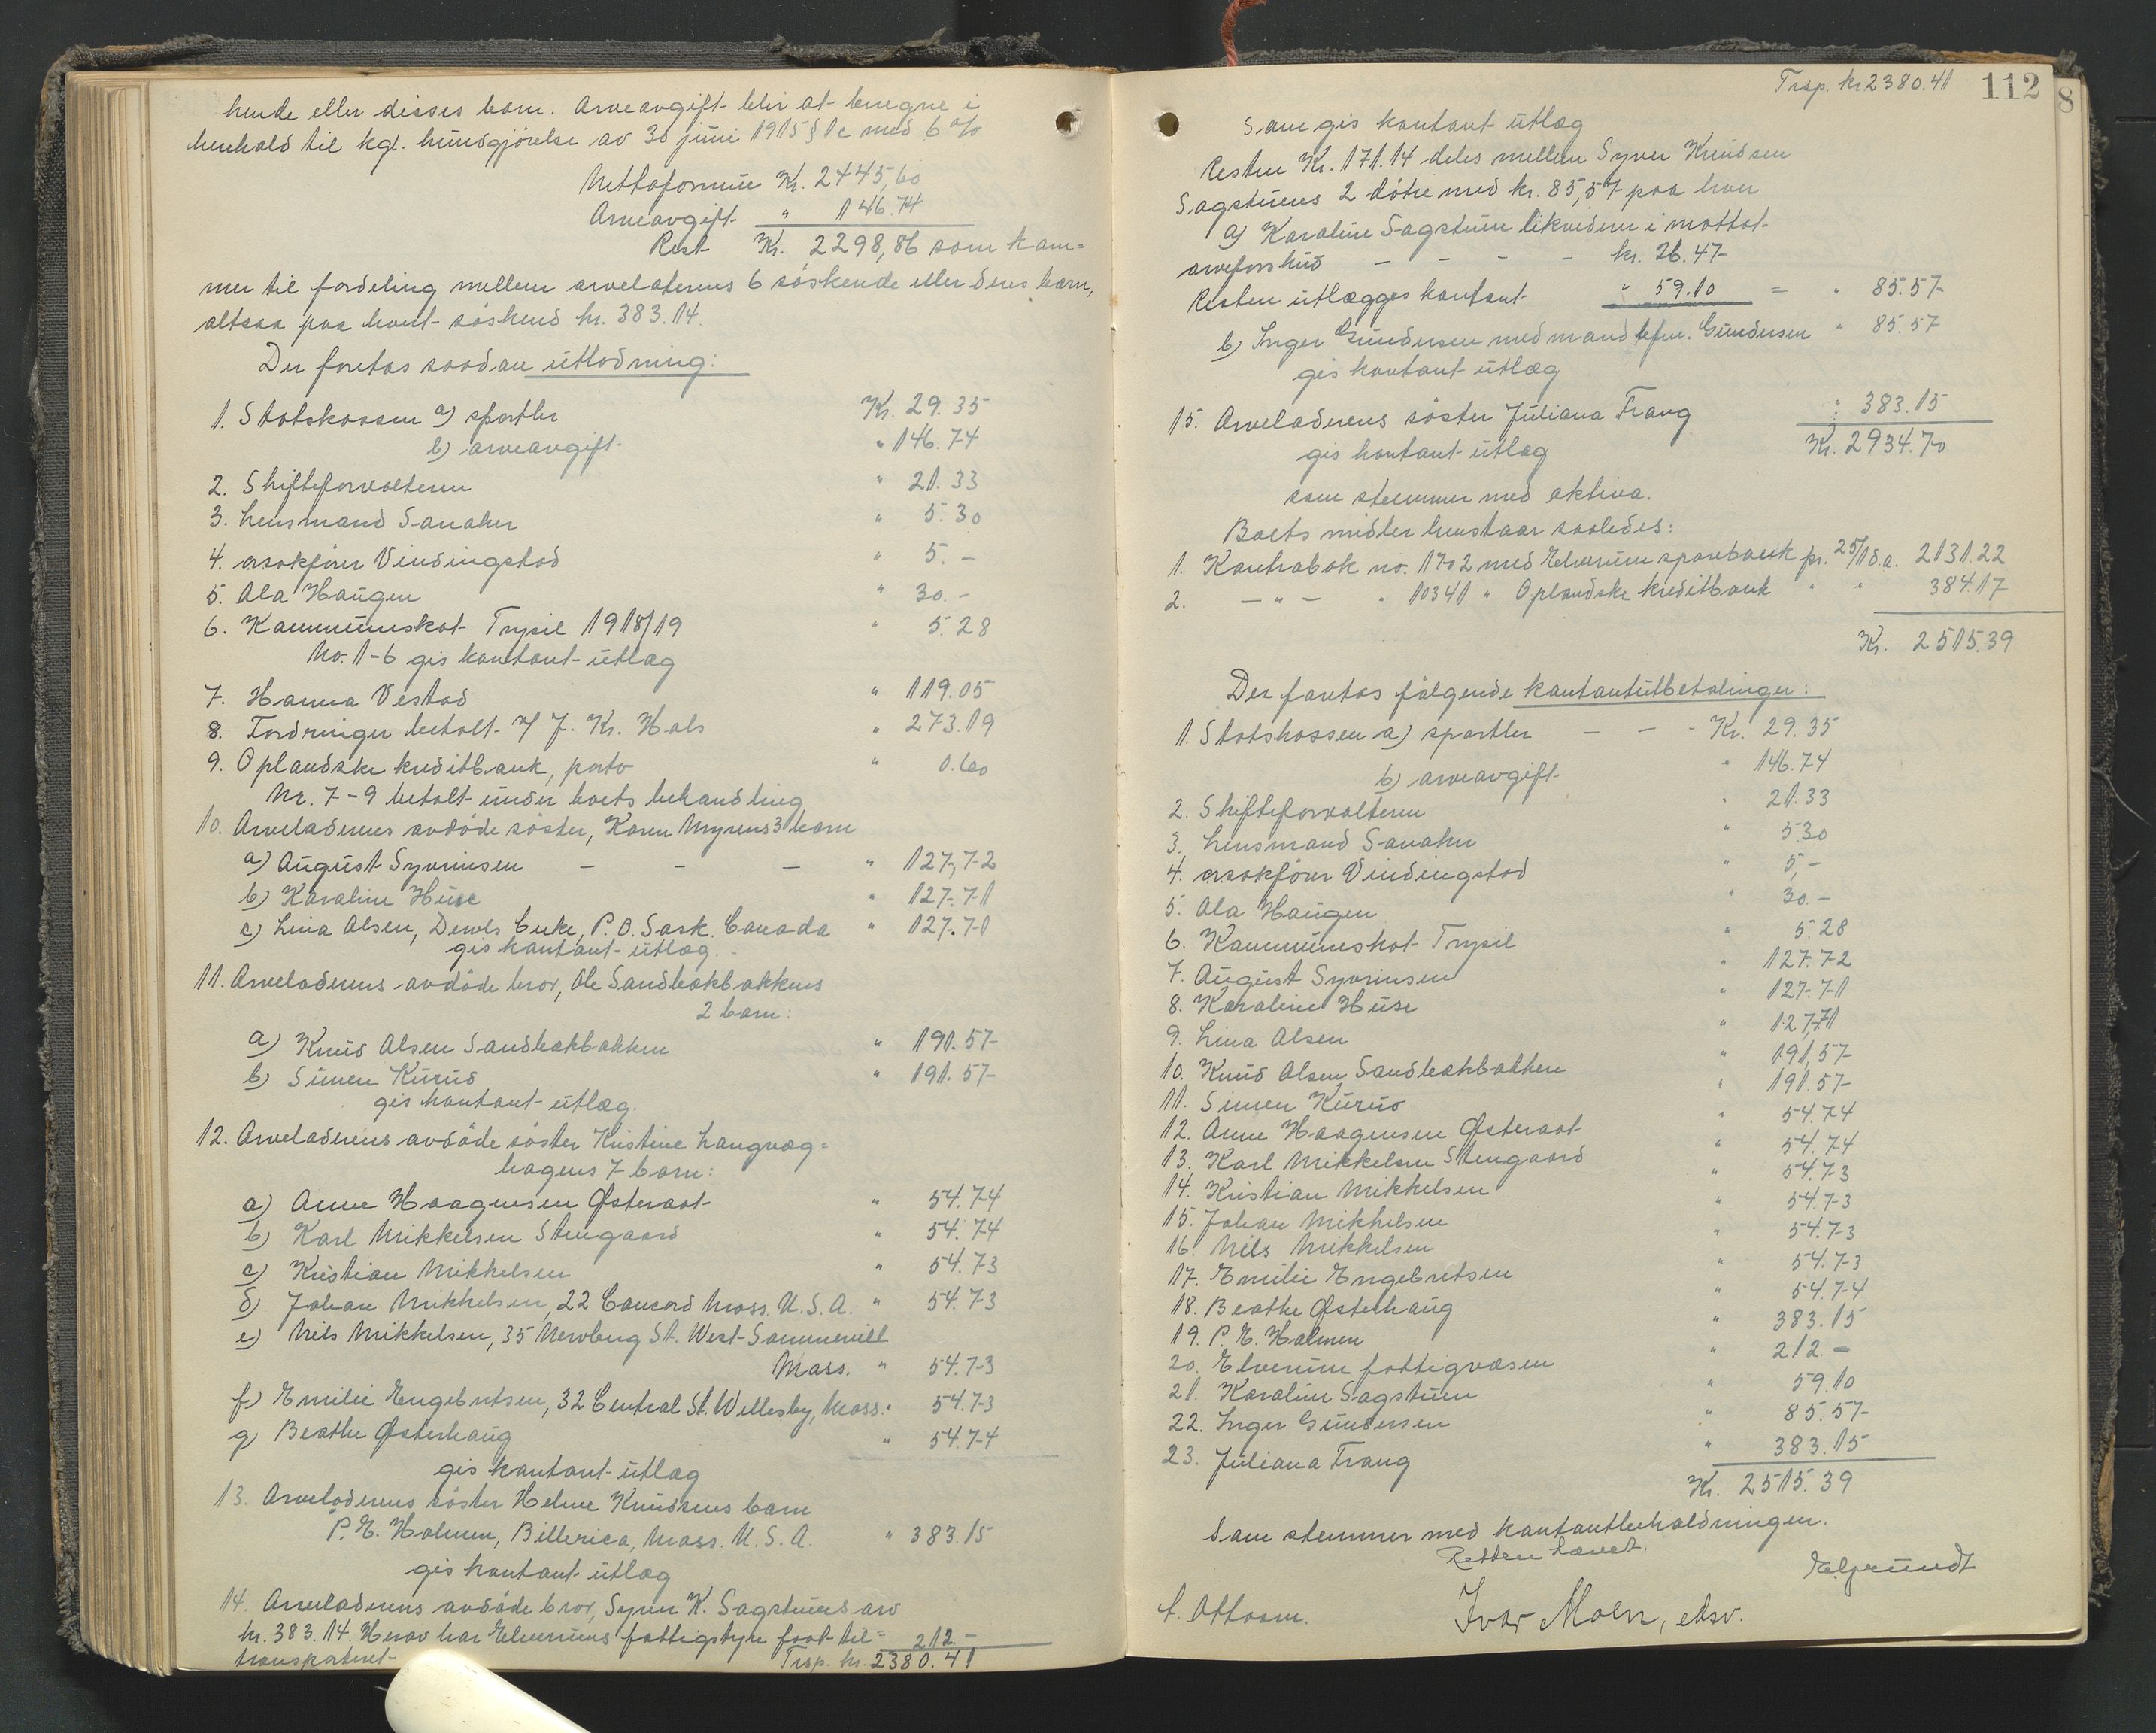 hende eller disses barn. Arveavgift blir at beregne i
henhold til kgl. kundgjörelse av 30 juni 1915 § 1c med 6%
Nettoformue Kr. 2445,60
Arveavgift " 146.74
Rest Kr. 2298,86 som kom-
mer til fordeling mellem arvelaterens 6 söskende eller deres barn,
altsaa paa hvert söskend kr. 383.14.
Der foretas saadan utlodning:
1. Statskassen a) sportler Kr. 29.35
b) arveavgift " 146.74
2. Skifteforvalteren " 21.33
3. Lensmand Sanaker " 5.30
4. orsakförer Vindingstad " 5.-
5. Ola Haugen " 30.-
6. Kommuneskat Trysil 1918/19 " 5.28
No. 1-6 gis kontant utlæg
7. Hanna Vestad " 119.05
8. Fordringer betalt v/ J. Kr. Hals " 273.19
9. Oplandske kreditbank, porto " 0.60
Nr. 7-9 betalt under boets behandling
10. Arveladerens avdöde söster, Karen Myrens 3 barn
a) August Syverinsen - - - " 127,72
b) Karoline Huse " 127.71
c) Lina Olsen, P.O. Sask. Canada " 127.71
gis kontant utlæg.
11. Arveladerens avdöde bror, Ole Sandbækbakkens
2 barn:
a) Knud Olsen Sandbækbakken " 191.57
b) Simen Kurud " 191.57
gis kontant utlæg.
12. Arveladerens avdöde söster Kristine Langvæg-
hagens 7 barn:
a) Anne Haagensen Østeraat " 54.74
b) Karl Mikkelsen Stengaard " 54.74
c) Kristian Mikkelsen " 54.73
d) Johan Mikkelsen, 22 Concord Mass. U.S.A. " 54.73
e) Nils Mikkelsen, 35 Newberg St. West-Sommervill
Mass. " 54.73
f) Emilie Engebretsen, 32 Central St. Wellesby, Mass. " 54.73
g) Beathe Østerhaug " 54.74
gis kontant utlæg
13. Arveladerens söster Helene Knudsens barn
P. E. Holmen, Billerica, Mass. U.S.A. " 383.15
gis kontant utlæg
14. Arveladerens avdöde bror, Syver K. Sagstuens arv
kr. 383.14. Herav har Elverums fattigstyre faat til- 212.-
transporteret Trsp. kr. 2380.41
Trsp. kr. 2380.41 112
8
Som gis kontant utlæg
Resten Kr. 171.14 deles mellem Syver Knudsen
Sagstuens 2 dötre med kr. 85,57 paa hver
a) Karoline Sagstuen likvideres i mottat
arveforskud - - - - kr. 26.47
Resten utlægges kontant " 59.10 = " 85.57
b) Inger Gundersen med mand Gundersen " 85.57
gis kontant utlæg
15. Arveladerens söster Juliana Trang " 383.15
gis kontant utlæg Kr. 2934.70
som stemmer med aktiva.
Boets midler henstaar saaledes:
1. Kontrabok no. 1702 med Elverum sparebank pr. 25/10 d.a. 2131.22
2. - " - " 10341 " Oplandske kreditbank " " 384.17
Kr. 2515.39
Der foretas fölgende kontantutbetalinger:
1. Statskassen a) sportler - - - Kr. 29.35
b) arveavgift " 146.74
2. Skifteforvalteren " 21.33
3. Lensmand Sanaker " 5.30
4. orsakförer Vindingstad " 5,-
5. Ola Haugen " 30.-
6. Kommuneskat Trysil " 5.28
7. August Syverinsen " 127.72
8. Karoline Huse " 127.71
9. Lina Olsen " 127.71
10. Knud Olsen Sandbækbakken " 191,57
11. Simen Kurud " 191.57
12. Anne Haagensen Østeraat " 54.74
13. Karl Mikkelsen Stengaard " 54.74
14. Kristian Mikkelsen " 54.73
15. Johan Mikkelsen " 54.73
16. Nils Mikkelsen " 54.73
17. Emilie Engebretsen " 54.73
18. Beathe Østerhaug " 54.74
19. P. E. Holmen " 383.15
20. Elverum fattigvæsen " 212.-
21. Karoline Sagstuen " 59.10
22. Inger Gundersen " 85.57
23. Juliana Trang " 383.15
Kr. 2515.39
Som stemmer med kontantbeholdningen.
Retten hævet.
Elgrundt
A. Ottosen. Ivar Moen, edsv.